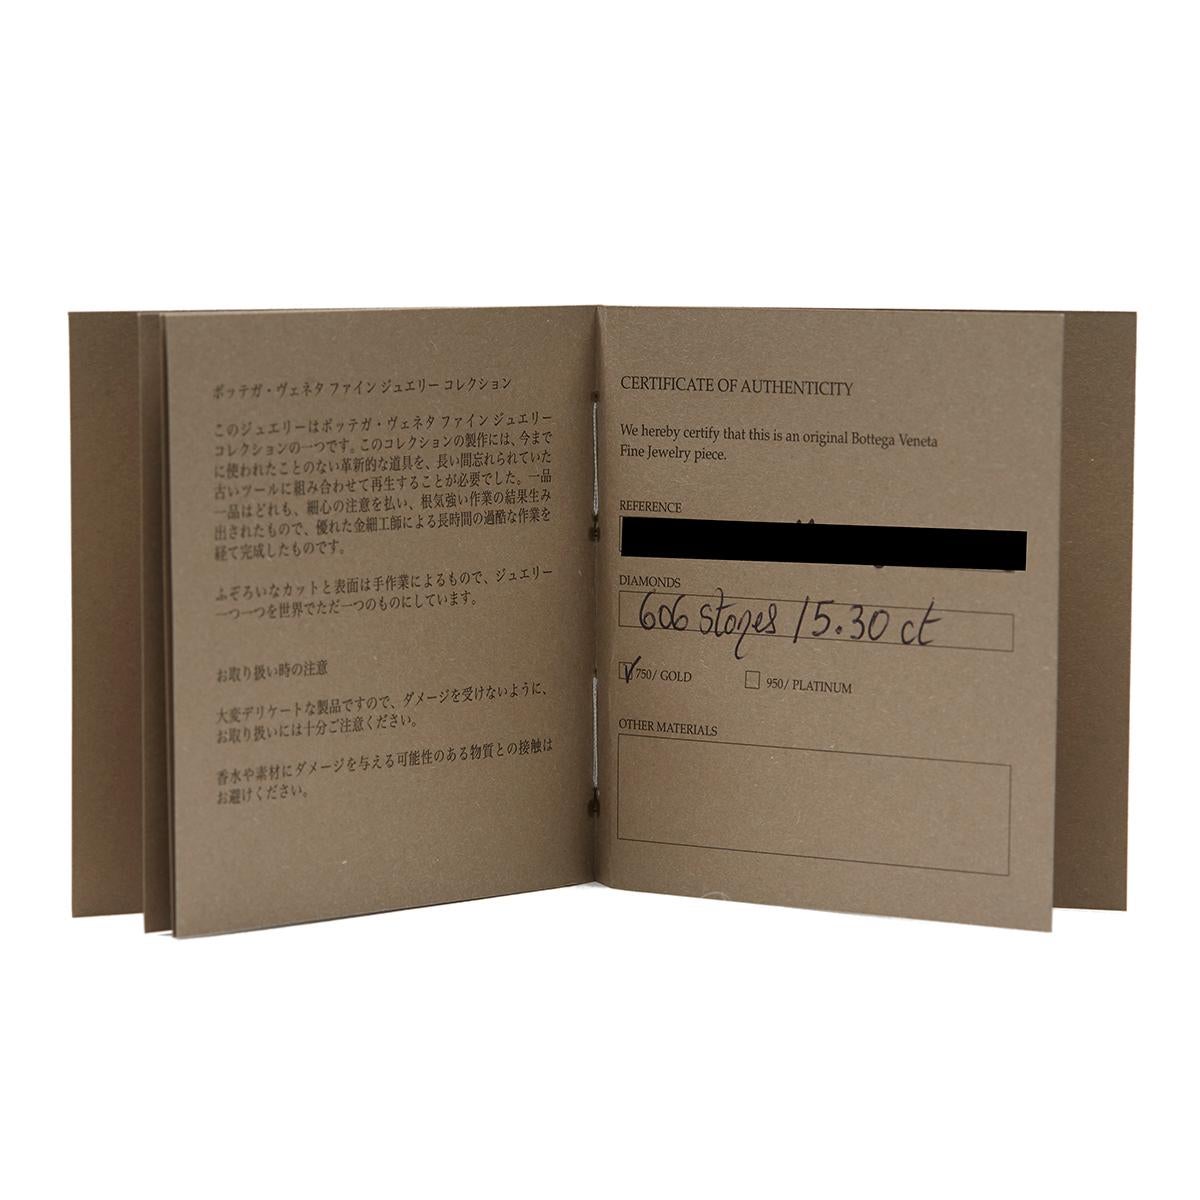 ボッテガ・ヴェネタ ファイン ジュエリー コレクション
このジュエリーはボッテガ・ヴェネタ ファイン ジュエリー
コレクションの一つです。このコレクションの製作には、今まで
に使われたことのない革新的な道具を、長い間忘れられていた
古いツールに組み合わせて再生することが必要でした。一品
一品はどれも、細心の注意を払い、根気強い作業の結果生み
出されたもので、優れた金細工師による長時間の過酷な作業を
経て完成したものです。
ふぞろいなカットと表面は手作業によるもので、ジュエリー
一つ一つを世界でただ一つのものにしています。
お取り扱い時の注意
大変デリケートな製品ですので、ダメージを受けないように、
お取り扱いには十分ご注意ください。
香水や素材にダメージを与える可能性のある物質との接触は
お避けください。
CERTIFICATE OF AUTHENTICITY
We hereby certify that this is an original Bottega Veneta
Fine Jewelry piece.
REFERENCE
DIAMONDS
606 stones 15.30 ct
750/ GOLD 950/ PLATINUM
OTHER MATERIALS